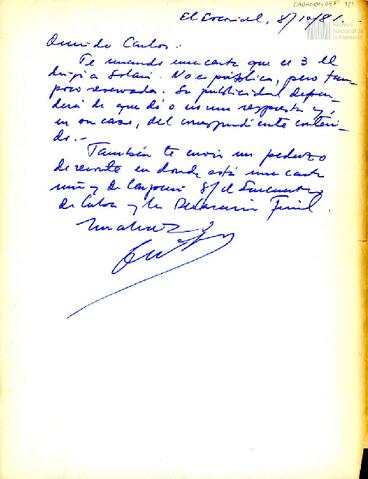 El Escorial, 8/10/81.
Querido Carlos:
Te mando una carta que el 3 le
dirigí a Solari. No es pública, pero tam
poco reservada. Su publicidad depen
derá de que dé o no una respuesta y,
en su caso, del correspondiente conteni-
do.-
También te envío un pedazo
de revista en donde está una carta
mía y de s/ el Encuentro
de Cuba y la Declaración Final.
Un abrazo
Archivo
Nacional de
la Memoria